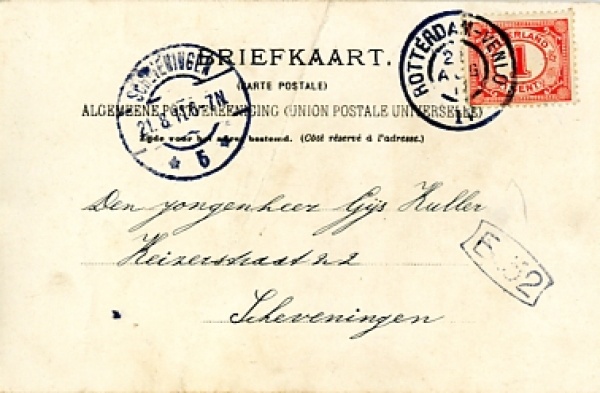 BRIEFKAART.
(CARTE POSTALE)
ALGEMEENE POSTVEREENIGING (UNION POSTALE UNIVERSELLE)
Zijde voor het adres bestemd. (Côté réservé à l'adresse.)
SCHEVENINGEN
21.8.11.6-7N
* 5 *
ROTTERDAM-VENLO
21
AUG
11
NEDERLAND
1
CENT
Den jongenheer Gijs Kuller
Keizerstraat 22
Scheveningen